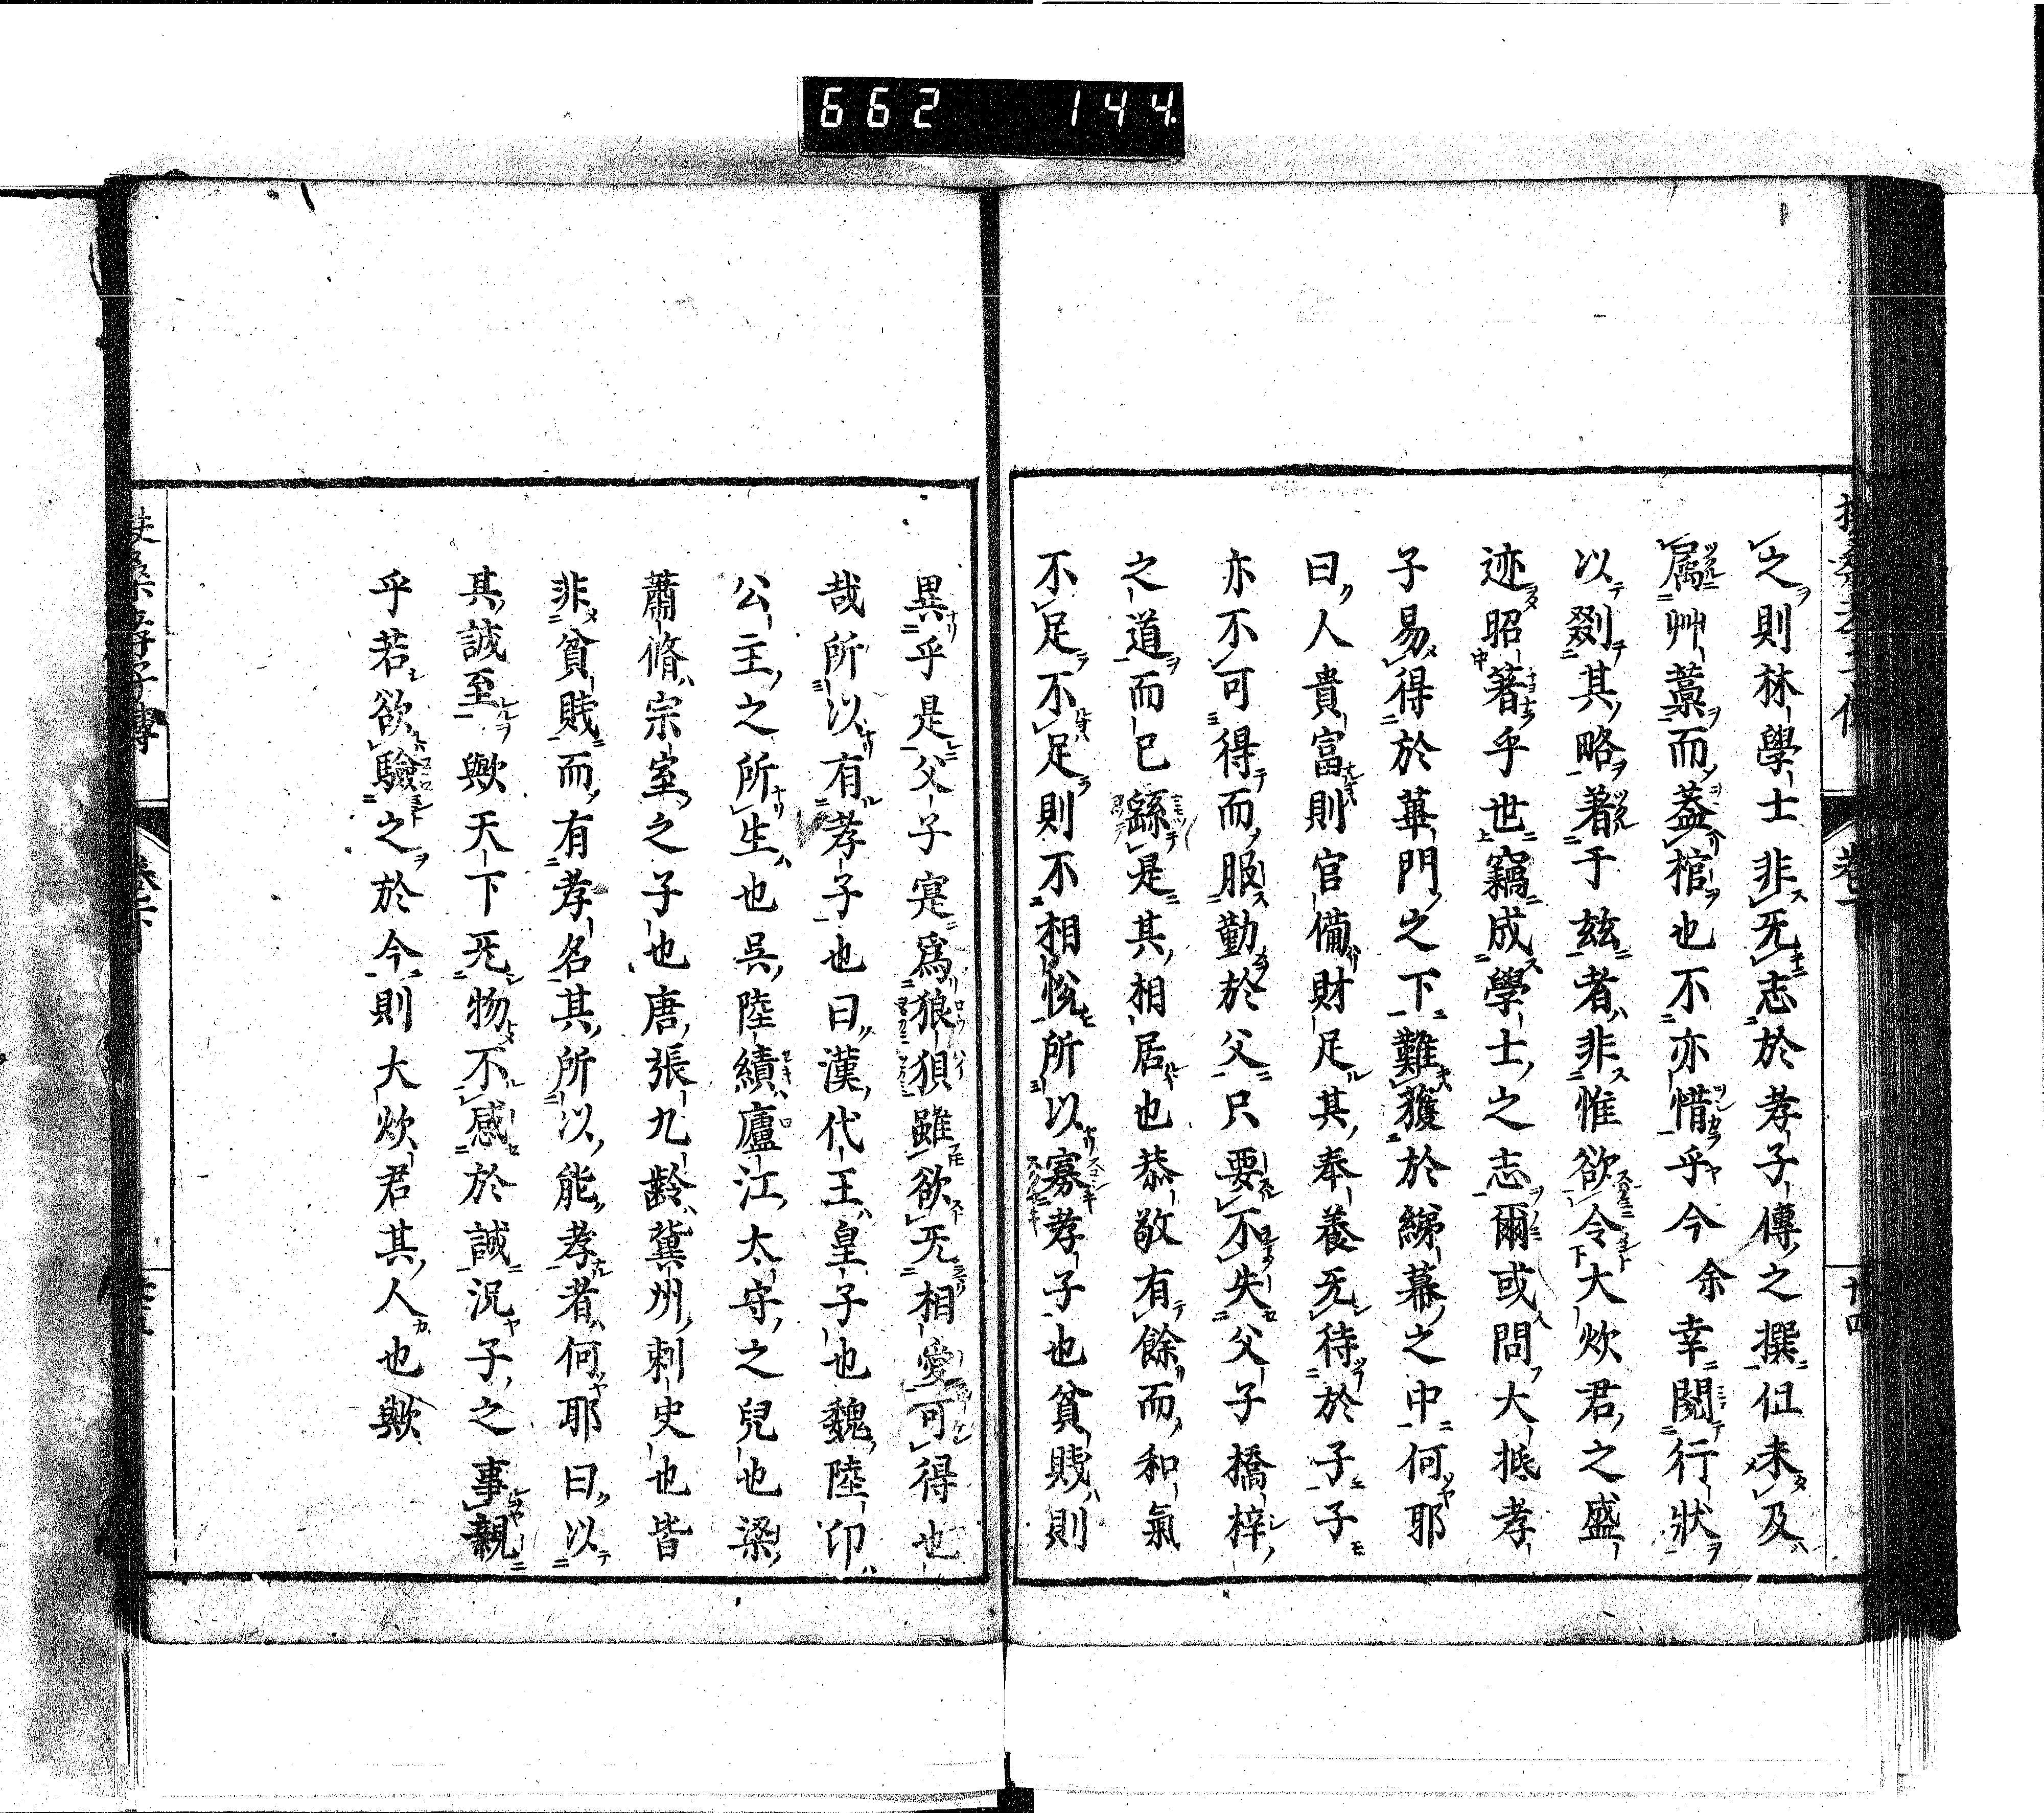 662 144
之則林學士非无志於孝子傳之撰但未及
屬艸藁而蓋棺也不亦惜乎今余幸閱行狀
以剟其略著于茲者非惟欲令大炊君之盛
迹昭著乎世竊成學士之志爾或問大抵孝
子易得於蓽門之下難獲於綈幕之中何耶
曰人貴富則官備財足其奉養无待於子子
亦不可得而服勤於父只要不失父子橋梓
之道而已繇是其相居也恭敬有餘而和氣
不足不足則不相悅所以寡孝子也貧賤則
異乎是父子寔爲狼狽雖欲无相愛可得也
哉所以有孝子也曰漢代王皇子也魏陸卬
公主之所生也吳陸績廬江太守之兒也梁
蕭脩宗室之子也唐張九齡冀州刺史也皆
非貧賤而有孝名其所以能孝者何耶曰以
其誠至歟天下无物不感於誠況子之事親
乎若欲驗之於今則大炊君其人也歟